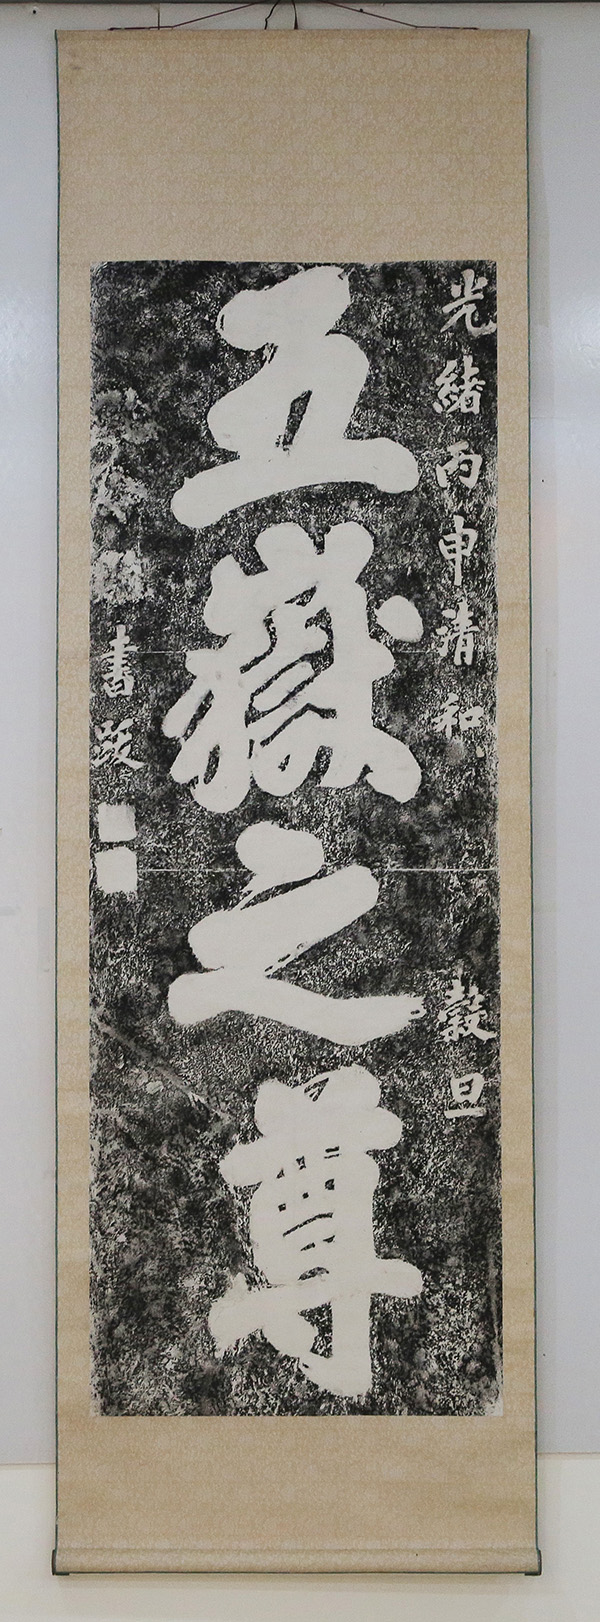 光緒丙申清和穀旦
五嶽之尊
書